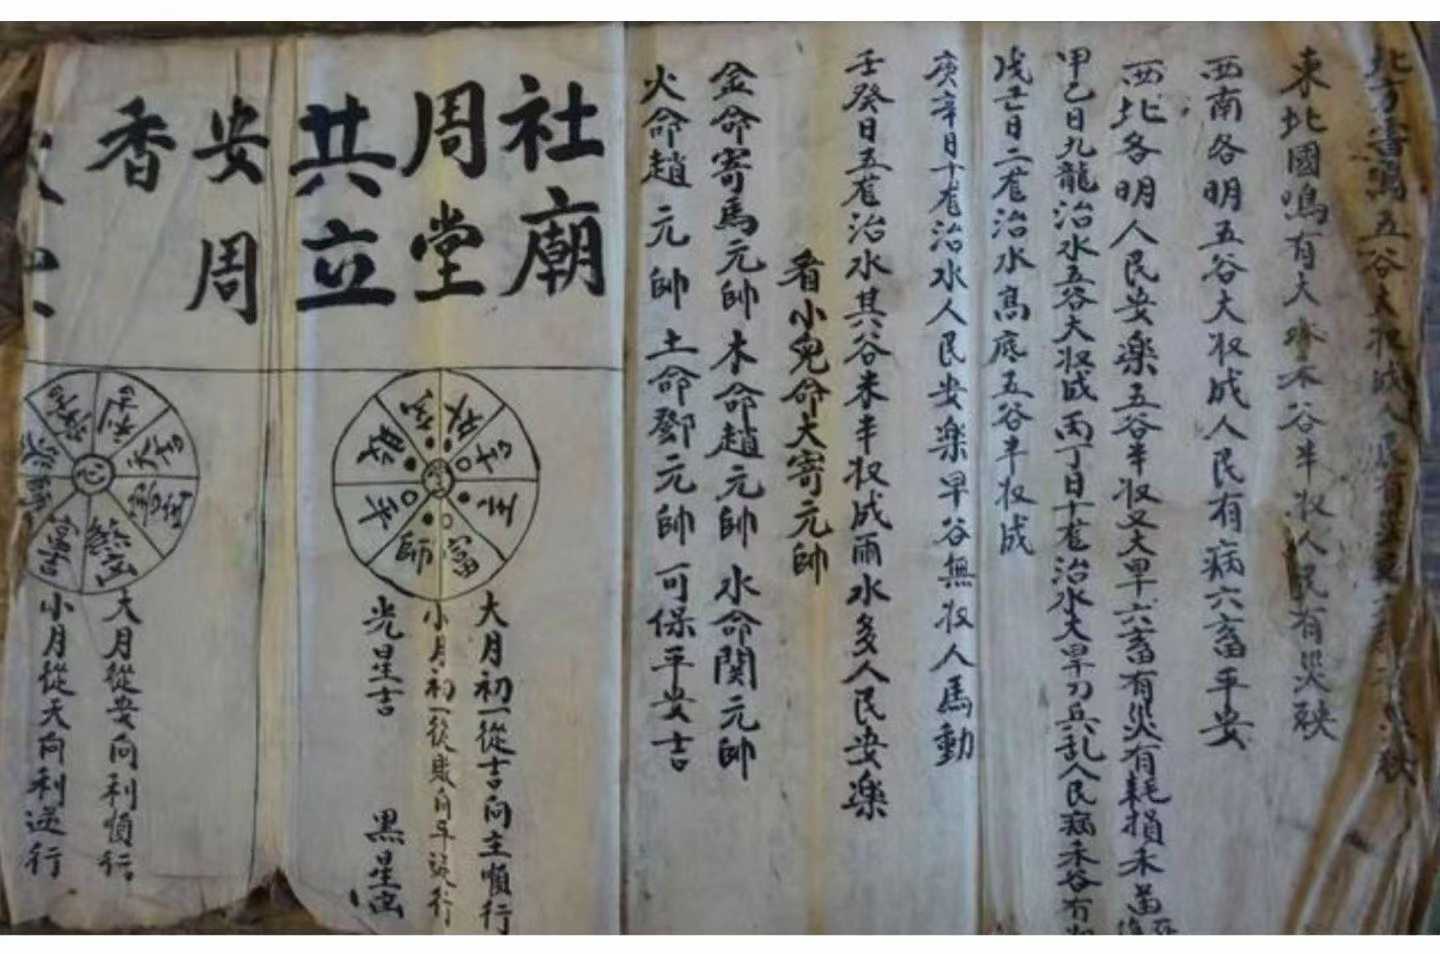 北方雷鳴五谷大收成人民有
東北國鳴有大水禾谷半收人民有災殃
西南各明五谷大收成人民有病六畜平安
西北各明人民安樂五谷半收又大旱六畜有災有耗損禾苗
甲乙日九龍治水五谷大收成丙丁日十龍治水大旱刀兵乱人民病禾谷有
戊己日二龍治水高底五谷半收成
庚辛日十龍治水人民安樂早谷無收人馬動
壬癸日五龍治水其谷来半收成雨水多人民安樂
看小兒命大寄元帥
金命寄馬元帥 木命趙元帥 水命関元帥
火命趙元帥 土命鄧元帥 可保平安吉
社廟
周堂
共立
吉 主 富 師 平 敗
大月初一從吉向主順行
小月初一從敗向平逆行
光星吉 黑星凶
安周
香
天 利 安
大月從安向利順行
小月從天向利逆行